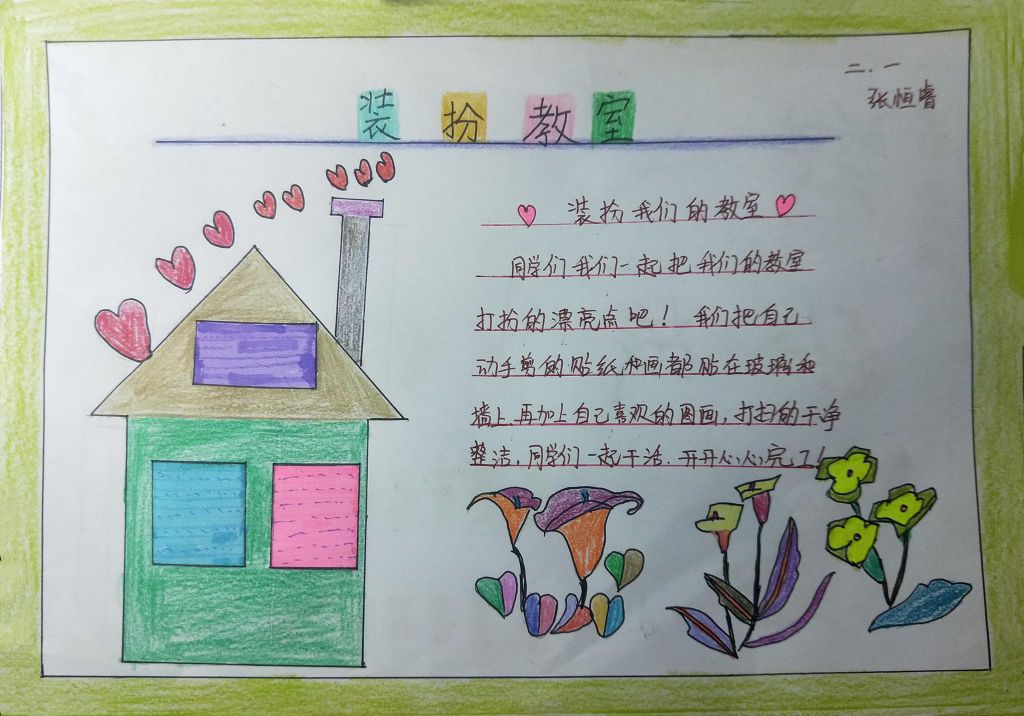 二.一
张恒睿
装扮教室
装扮我们的教室
同学们我们一起把我们的教室
打扮的漂亮点吧！我们把自己
动手剪的贴纸和画都贴在玻璃和
墙上再加上自己喜欢的图画，打扫的干净
整洁，同学们一起干活.开开心心完工！